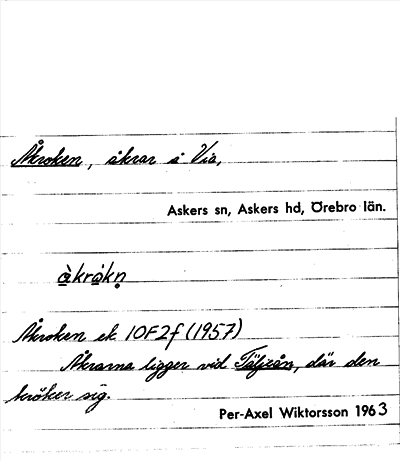 Åkroken, åkrar å Via,
Askers sn, Askers hd, Örebro län.
å̀krókn̥
Åkroken ek 10F2f (1957)
Åkrarna ligger vid Täljeån, där den
kröker sig.
Per-Axel Wiktorsson 1963